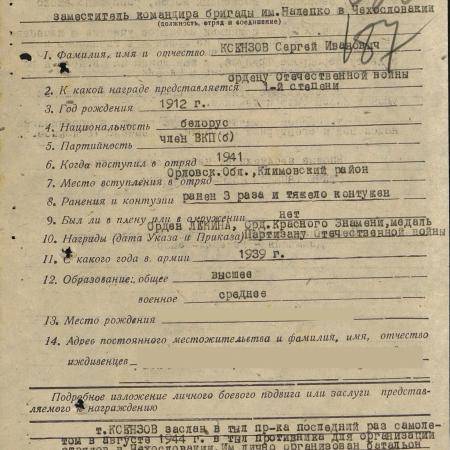 заместитель командира бригады им.Налепко в Чехословакии
(должность, отряд и соединение)
187
1. Фамилия, имя и отчество КСЕНЗОВ Сергей Иванович
ордену Отечественной войны
2. К какой награде представляется 1-й степени
3. Год рождения 1912 г.
4. Национальность белорус
5. Партийность член ВКП(б)
6. Когда поступил в отряд 1941
7. Место вступления в отряд Орловск.Обл.,Климовский район
8. Ранения и контузии ранен 3 раза и тяжело контужен
9. Был ли в плену или в окружении нет
Орден ЛЕНИНА, Орд.Красного Знамени,медаль
10. Награды (дата Указа и Приказа) Партизану Отечественной войны
11. С какого года в армии 1939 г.
12. Образование: общее высшее
военное среднее
13. Место рождения
14. Адрес постоянного местожительства и фамилия, имя, отчество
иждивенцев
Подробное изложение личного боевого подвига или заслуги представ-
ляемого к награждению
т.КСЕНЗОВ заслан в тыл пр-ка последний раз самоле-
том в августе 1944 г. в тыл противника для организации
отрядов в Чехословакии.Им лично организован батальон